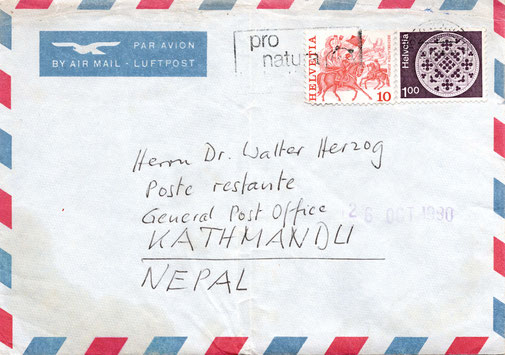 PAR AVION
BY AIR MAIL - LUFTPOST
pro
natura
HELVETIA
10
Helvetia
1.00
Herrn Dr. Walter Herzog
Poste restante
General Post Office
26 OCT 1990
KATHMANDU
NEPAL